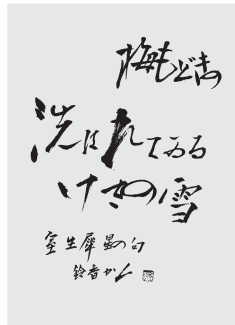 梅もどき
洗はれてゐる
けさの雪
室生犀星の句
鈴香かく